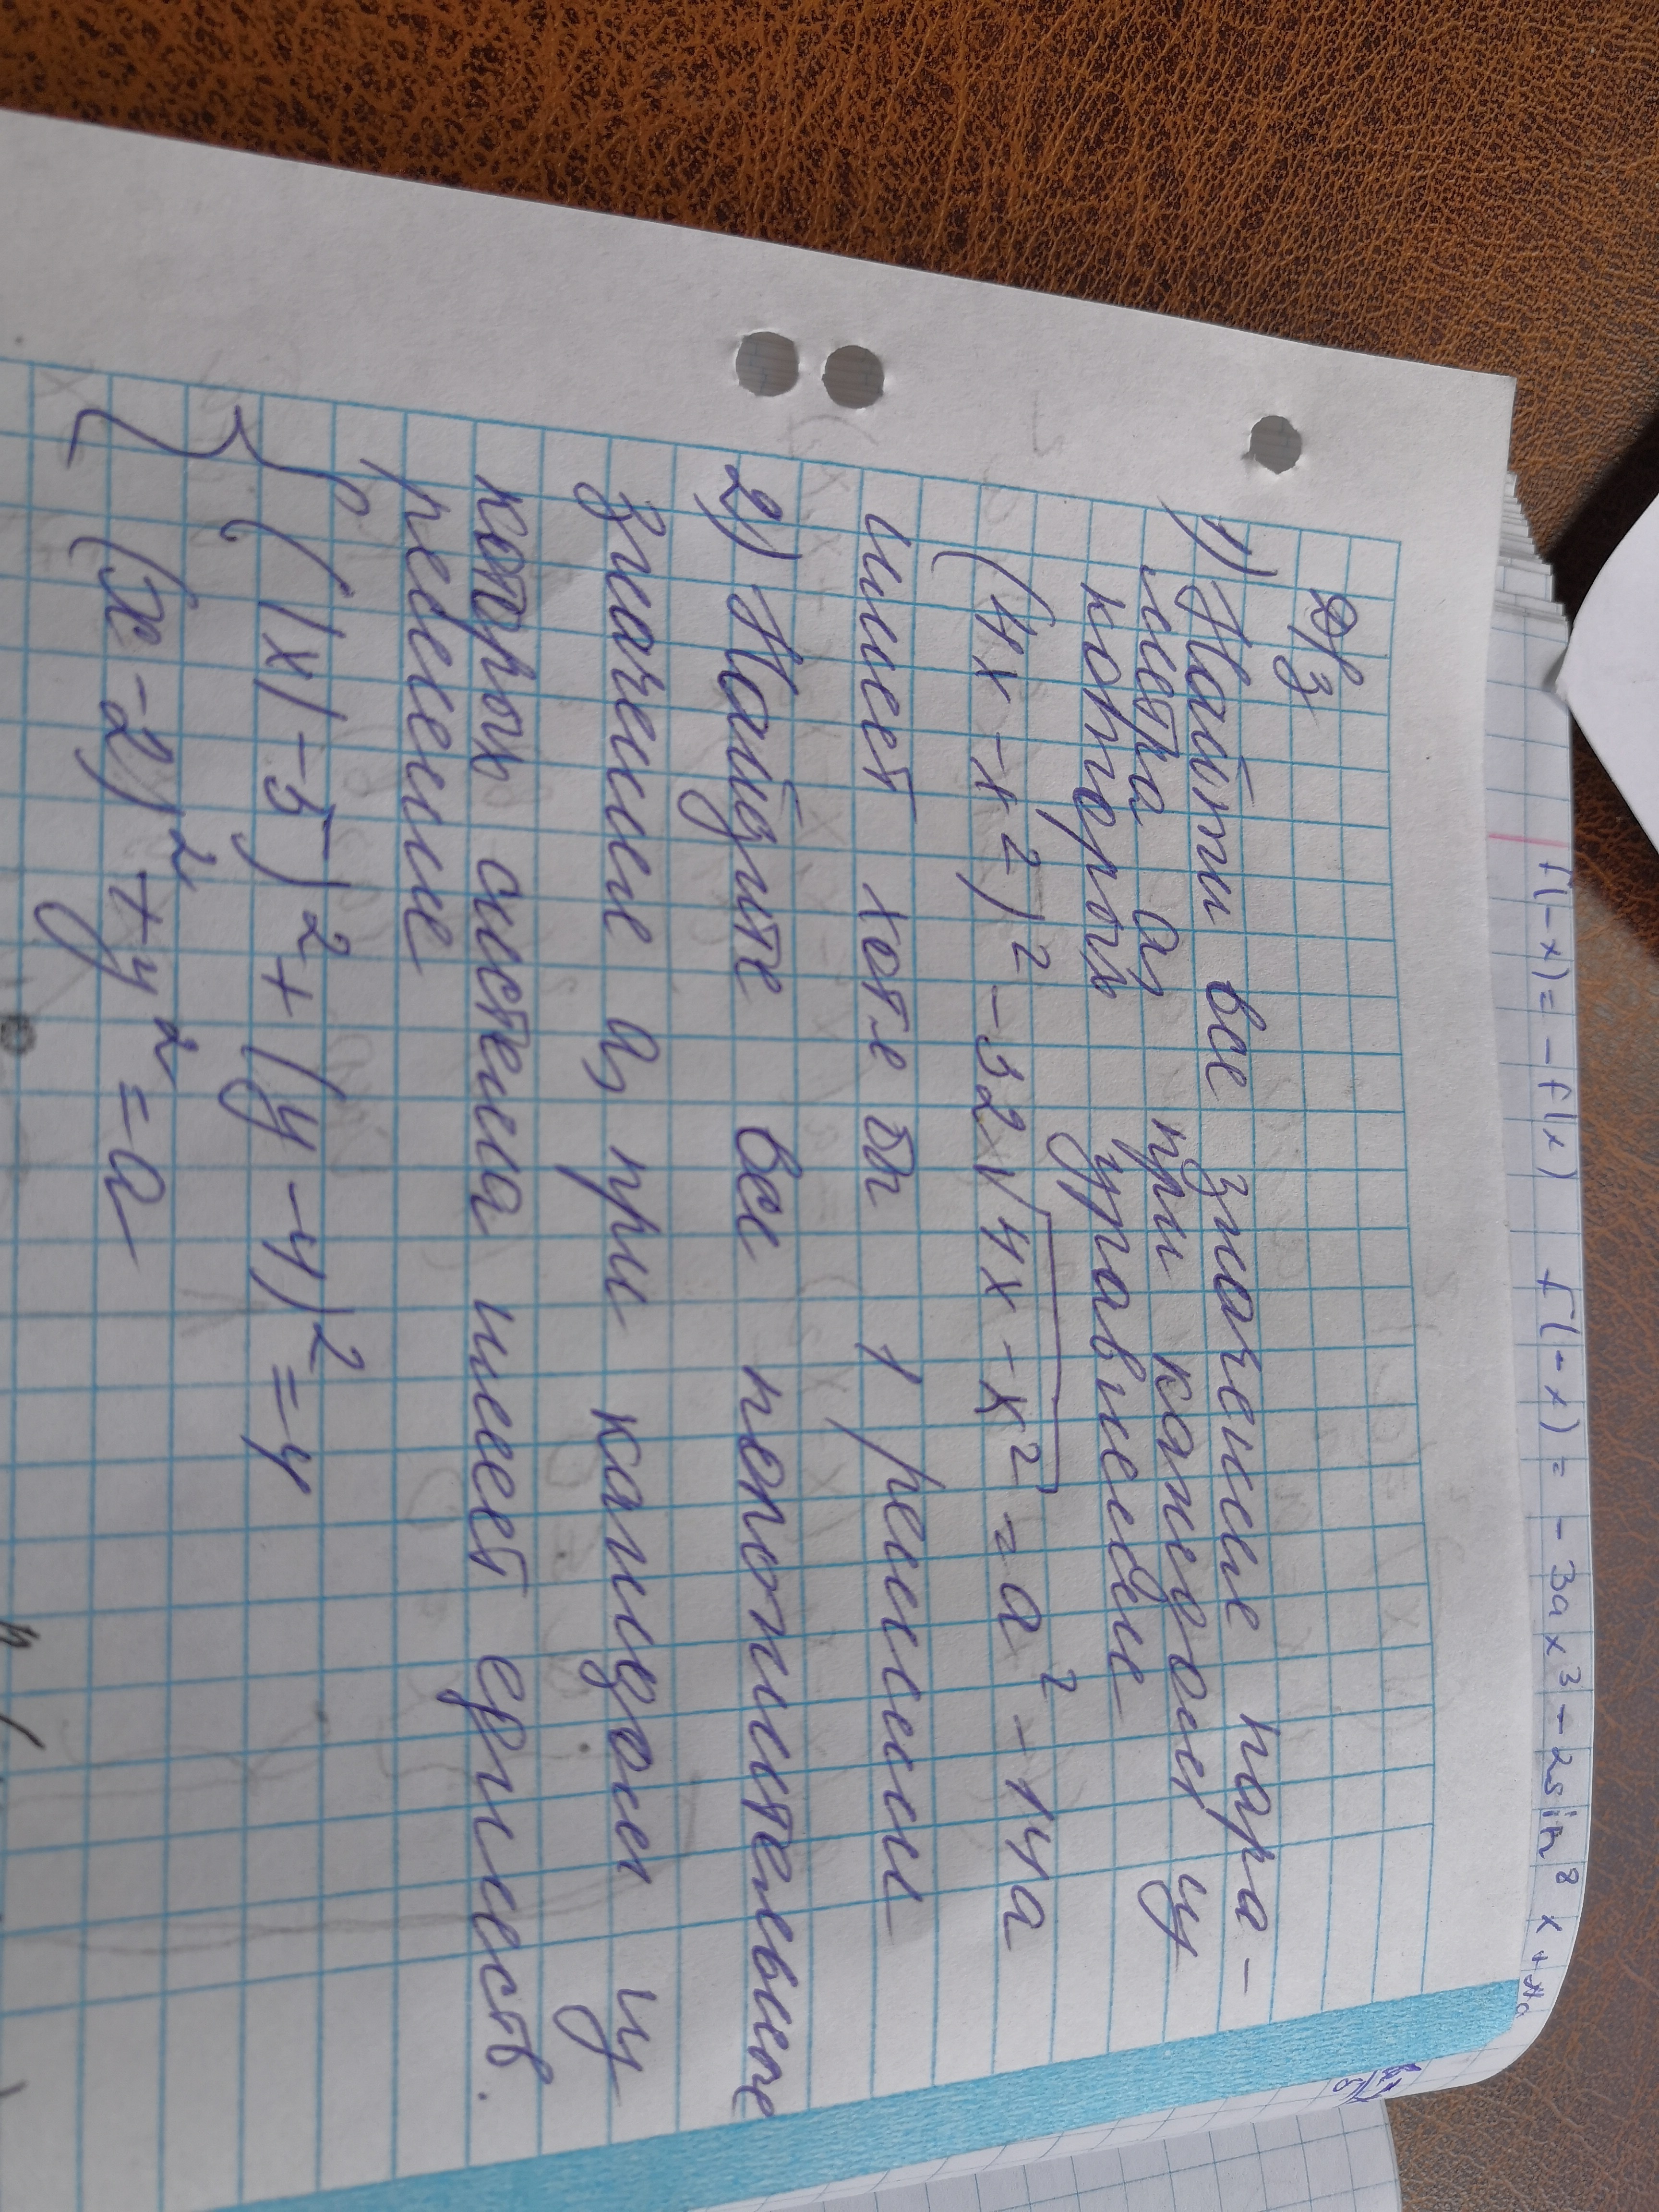 f(-x) = -f(x) f(-x) = -3ax³ - 2sin⁸ x +
Д/з
1) Найти все значение пара-
метра а, при каждому из
которых уравнение
(4x - x²)² - 32√4x - x² = a² - 14a
имеет хотя бы 1 решение
2) Найдите все положительные
значение а, при каждом из
которых система имеет единств.
решение
{ (|x| - 5)² + (y - 4)² = 4
(x - 2)² + y² = a